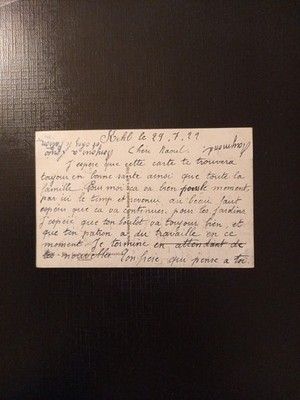 Kehl le 29.7.21
Cher Marcel
J'espère que cette carte te trouvera
toujour en bonne sante ainsi que toute la
famille. Pour moi sa va bien pour le moment
par ici le temp et revenue au beau faut
espoire que ca va continuer, pour les jardins
j'espère que ton boulot va toujour bien, et
que ton patron a du travaille en ce
moment. Je termine en attendant de
tes nouvelles Ton frère qui pense a toi.